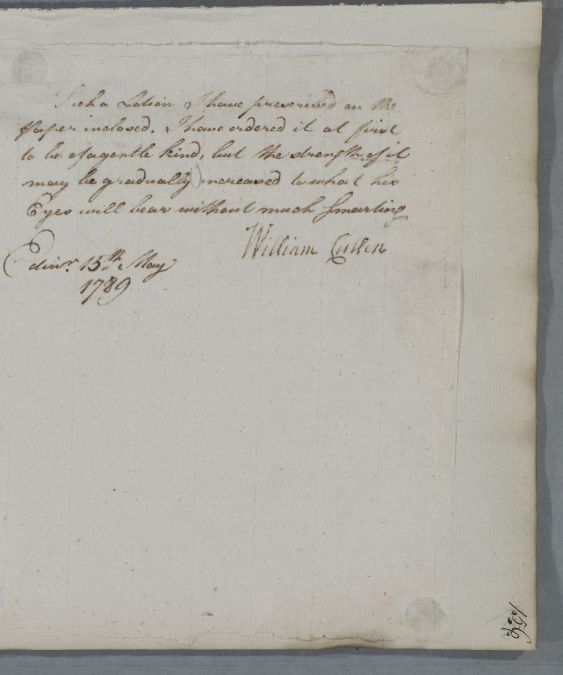 Such a Lotion I have prescribed on the
Paper inclosed. I have ordered it at first
to be of a gentle kind, but the strength of it
may be gradually increased to what his
Eyes will bear without much smarting
William Cullen
Edinr. 15th. May
1789